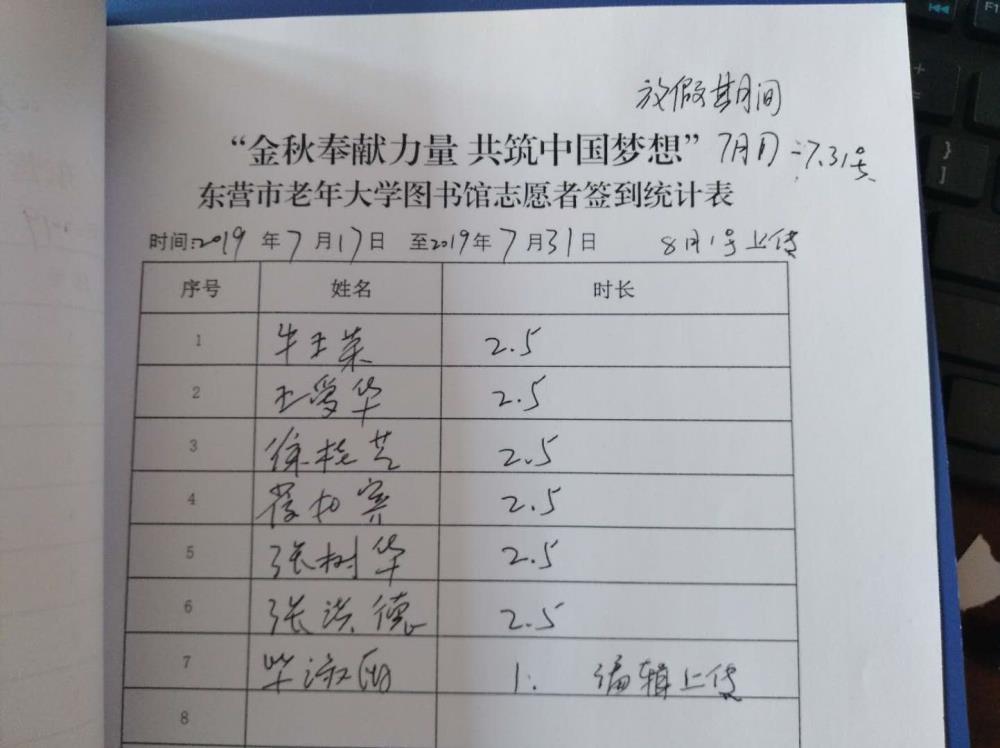 放假期间
“金秋奉献力量 共筑中国梦想” 7月 7.31号
东营市老年大学图书馆志愿者签到统计表
时间:2019 年 7 月 17 日 至2019年 7 月 31 日 8月1号上传
序号 姓名 时长
1 牛玉荣 2.5
2 王爱华 2.5
3 徐桂芝 2.5
4 2.5
5 张树华 2.5
6 张洪德 2.5
7 毕淑 1. 编辑上传
8